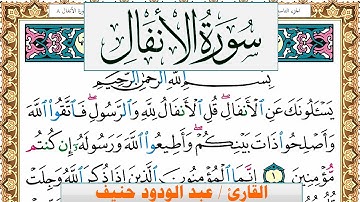 سُورَةُ الأَنفَالِ
بِسْمِ ٱللَّهِ ٱلرَّحْمَٰنِ ٱلرَّحِيمِ
يَسْـَٔلُونَكَ عَنِ ٱلْأَنفَالِ ۖ قُلِ ٱلْأَنفَالُ لِلَّهِ وَٱلرَّسُولِ ۖ فَٱتَّقُوا۟ ٱللَّهَ
وَأَصْلِحُوا۟ ذَاتَ بَيْنِكُمْ ۖ وَأَطِيعُوا۟ ٱللَّهَ وَرَسُولَهُۥٓ إِن كُنتُم
مُّؤْمِنِينَ ١ إِنَّمَا ٱلْمُؤْمِنُونَ ٱلَّذِينَ إِذَا ذُكِرَ ٱللَّهُ وَجِلَتْ
القارئ / عبد الودود حنيف